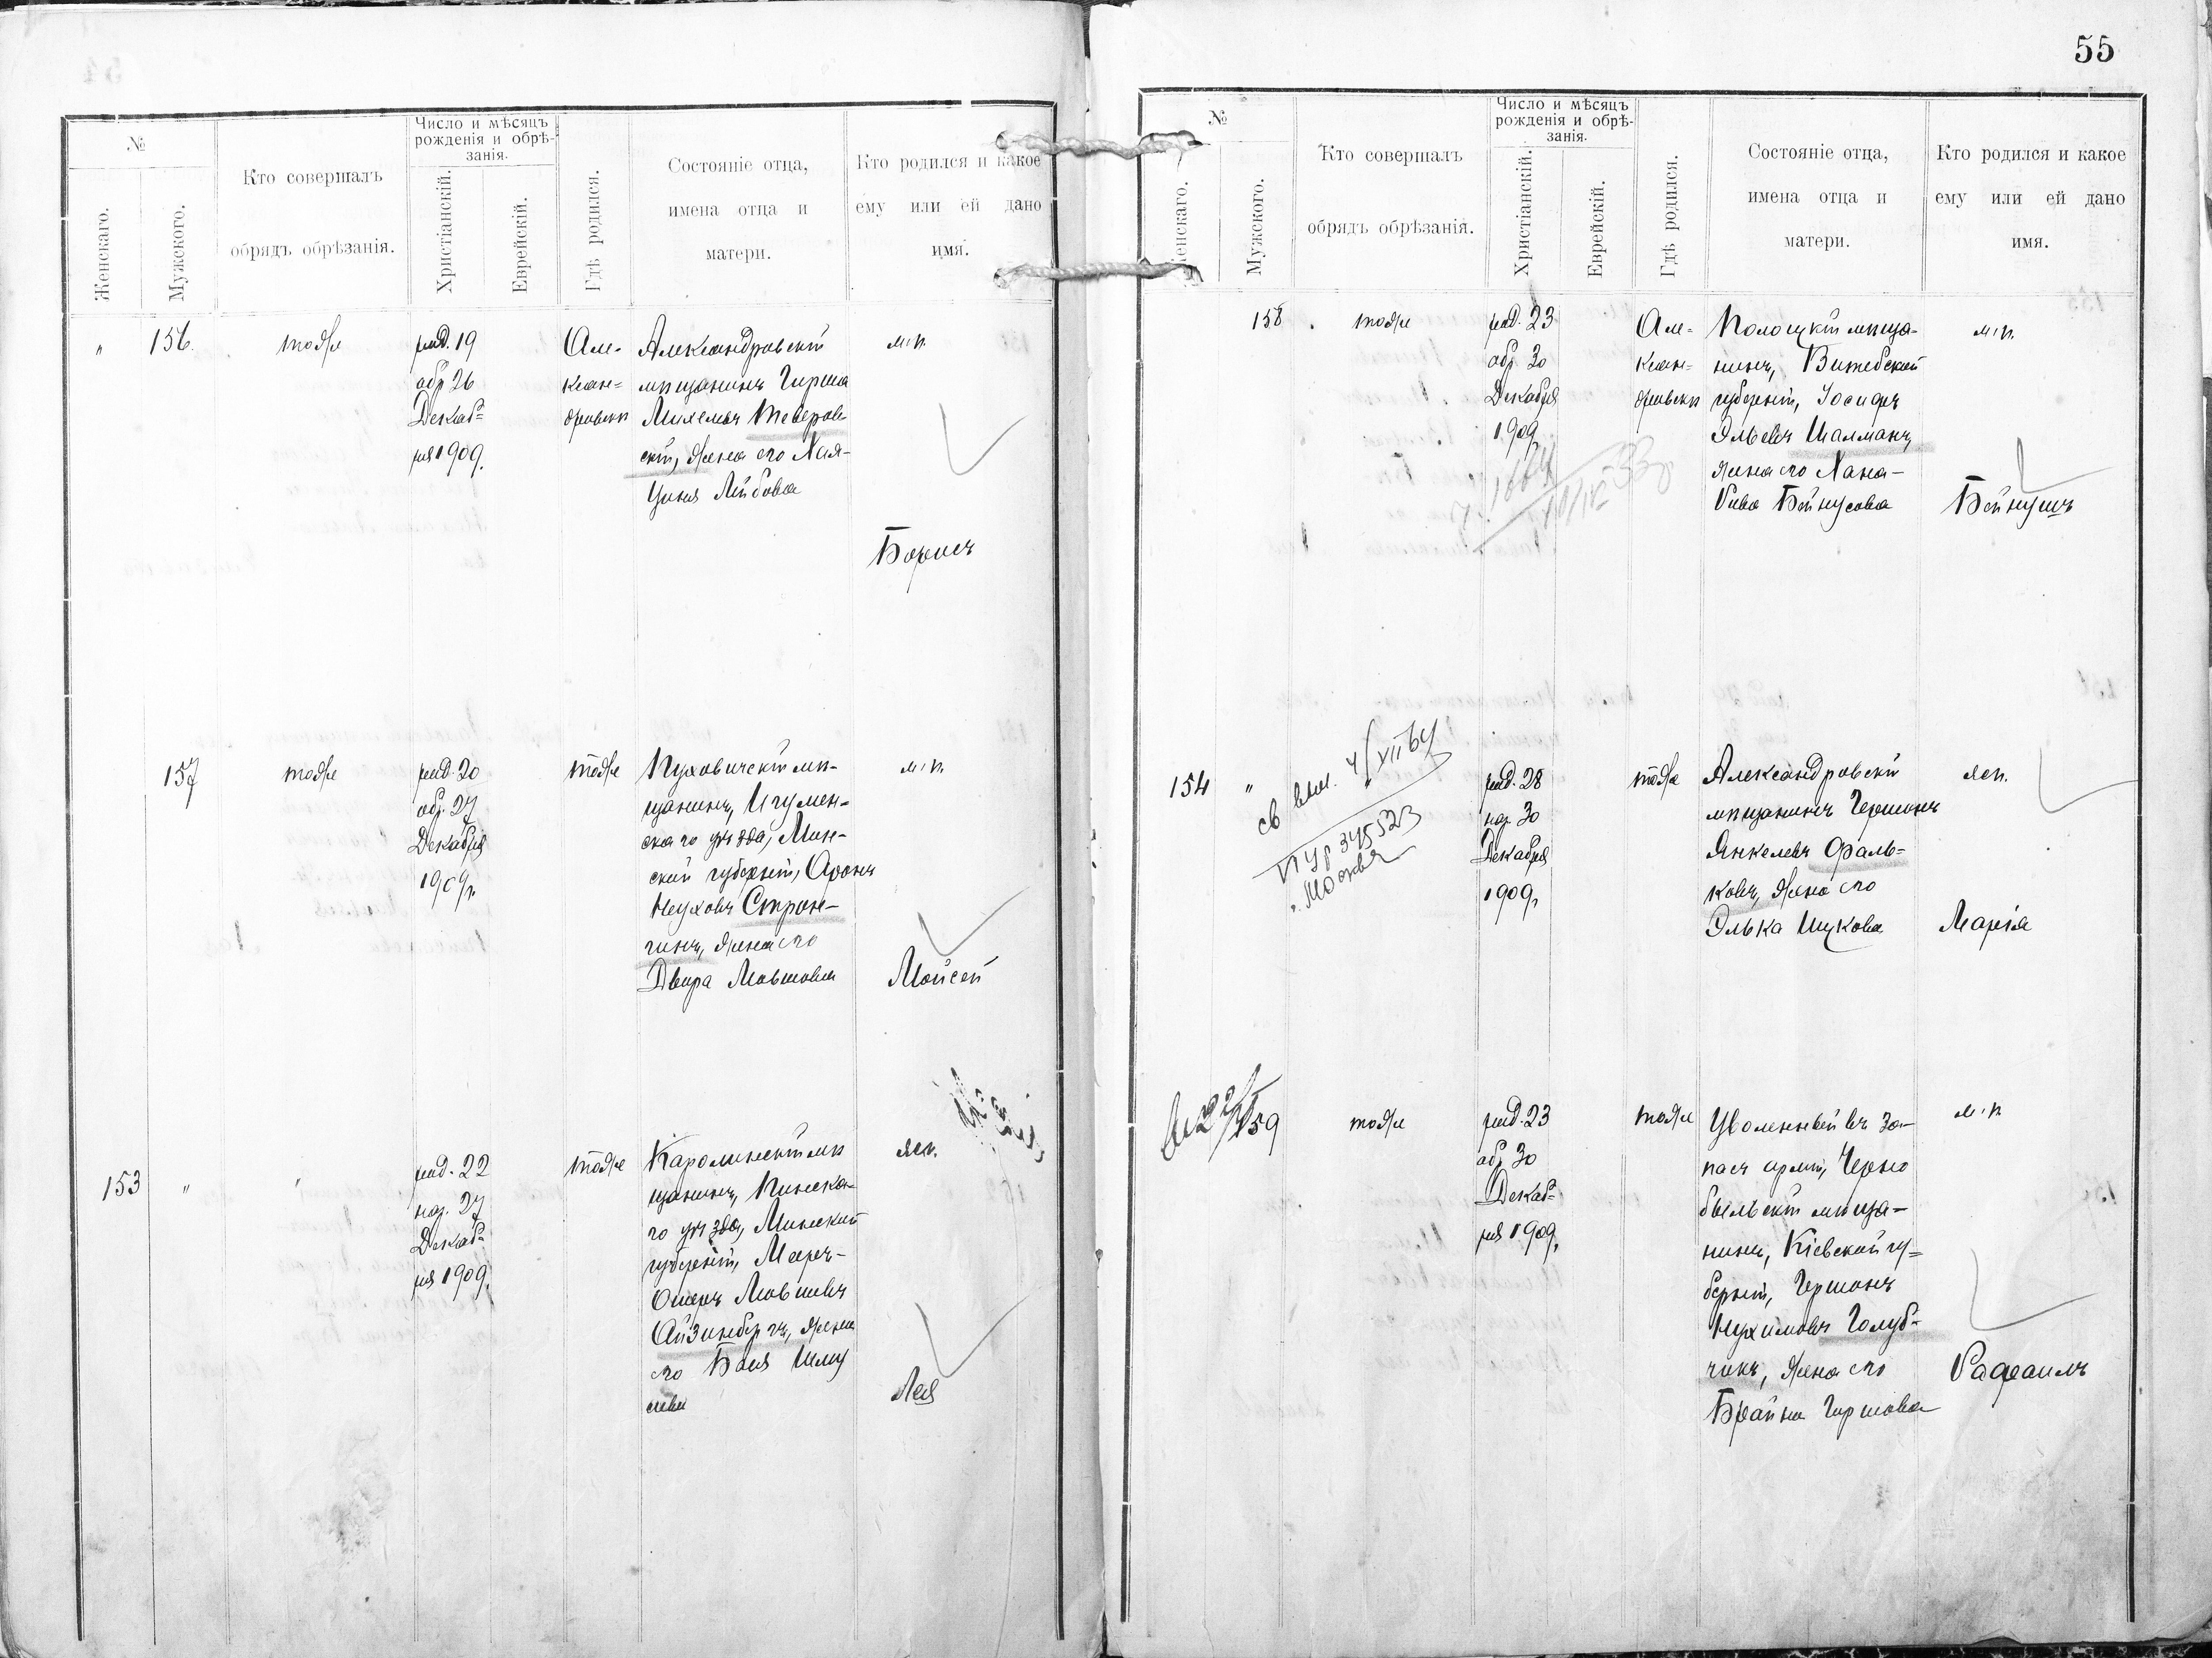 №
Женскаго.
Мужского.
Кто совершалъ
обрядъ обрѣзанія.
Число и мѣсяцъ
рожденія и обрѣ-
занія.
Христіанскій.
Еврейскій.
Гдѣ родился.
Состояніе отца,
имена отца и
матери.
Кто родился и какое
ему или ей дано
имя.
"
156.
тоже
род. 19
обр 26
Декаб=
ря 1909.
Але-
ксан=
дровски
Александровскій
мѣщанинъ Гирша
Михелевъ Теверов-
скій, жена его Хая-
Цивя Лейбова
м. п.
Борисъ
157
тоже
род. 20
обр. 27
Декабря
1909 г.
тоже
Пуховичскій мѣ-
щанинъ, Игумен-
скаго уѣзда, Мин-
ской губерніи, Аронъ
Неуховъ Строн-
гинъ, жена его
Двира Мовшова
м. п.
Мойсей
153
"
"
род. 22
нар. 27
Декаб=
ря 1909.
тоже
Каролинскій мѣ
щанинъ, Пинска-
го уѣзда, Минской
губерніи, Мееръ-
Ошеръ Мовшевъ
Айзинбергъ, жена
его Бася Шму
слева
жен.
Лея
55
№
Женскаго.
Мужского.
Кто совершалъ
обрядъ обрѣзанія.
Число и мѣсяцъ
рожденія и обрѣ-
занія.
Христіанскій.
Еврейскій.
Гдѣ родился.
Состояніе отца,
имена отца и
матери.
Кто родился и какое
ему или ей дано
имя.
158
тоже
род. 23
обр. 30
Декабря
1909
Але=
ксан=
дровски
Полоцкій мѣща-
нинъ, Витебской
губерніи, Іосифъ
Эльевъ Шалманъ,
жена его Хана-
Рива Бейнусова
м. п.
Бейнушъ
154
"
св вып. 4/XII 64
VI Ур 345523
г. Москва
род. 28
нар. 30
Декабря
1909 г.
тоже
Александровскій
мѣщанинъ Гершонъ
Янкелевъ Фаль=
ковъ, жена его
Элька Ицкова
жен.
Марія
159
тоже
род. 23
обр 30
Декаб=
ря 1909.
тоже
Уволенный въ за-
пасъ арміи, Черно
быльскій мѣща-
нинъ, Кіевской гу=
берніи, Гершонъ
Нухимовъ Голуб=
чикъ, жена его
Брайна Гиршова
м. п
Рафаилъ